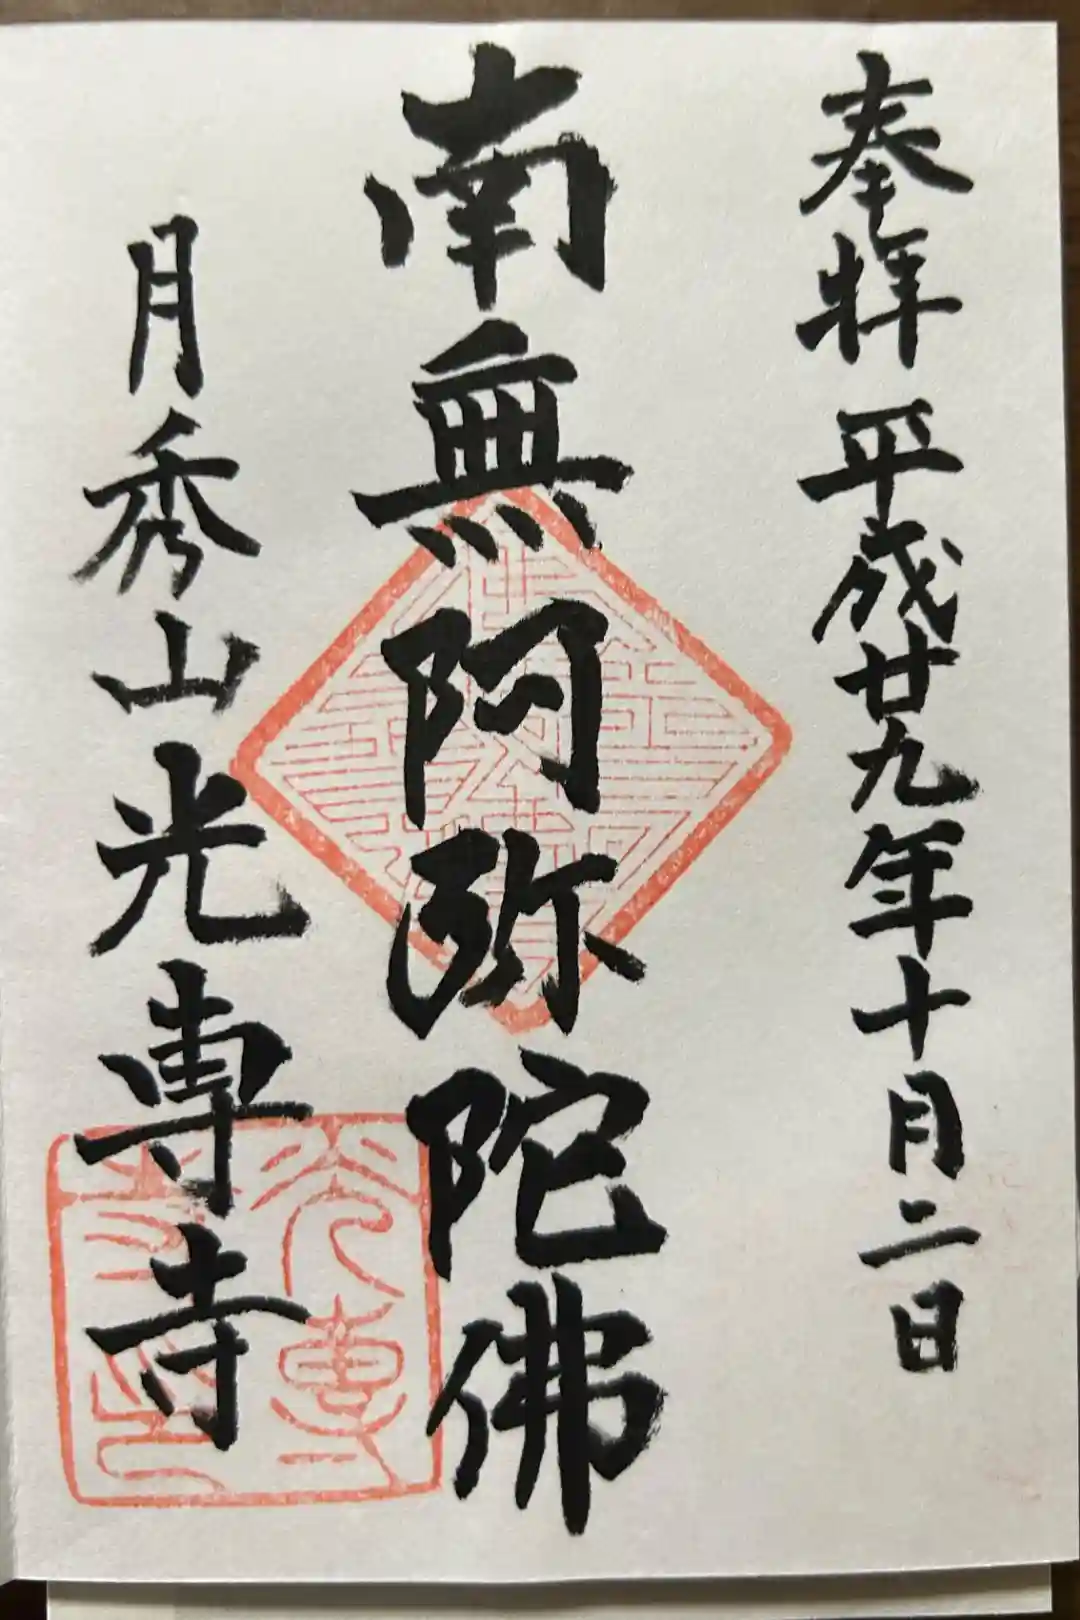 奉拝 平成廿九年十月二日
南無阿弥陀佛
月秀山光專寺